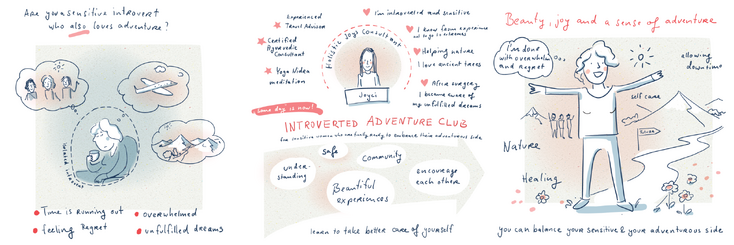 Are you a sensitive introvert
who also loves adventure?
• Time is running out
• feeling Regret
• overwhelmed
• unfulfilled dreams
Experienced
Travel Advisor
Certified
Ayurvedic
Consultant
Yoga Nidra
meditation
Holistic Joy Consultant
Joyce
I'm introverted and sensitive
I know from experience
Helping nature
I love ancient trees
After surgery
I became aware of
my unfulfilled dreams
Some day is now!
INTROVERTED ADVENTURE CLUB
For sensitive women who are finally ready to embrace their adventurous side
under-
standing
safe
Community
Beautiful
experiences
encourage
each other
learn to take better care of yourself
Beauty, joy and a sense of adventure
I'm done
with overwhelm
and regret
allowing
downtime
self care
Nature
Healing
you can balance your sensitive & your adventurous side